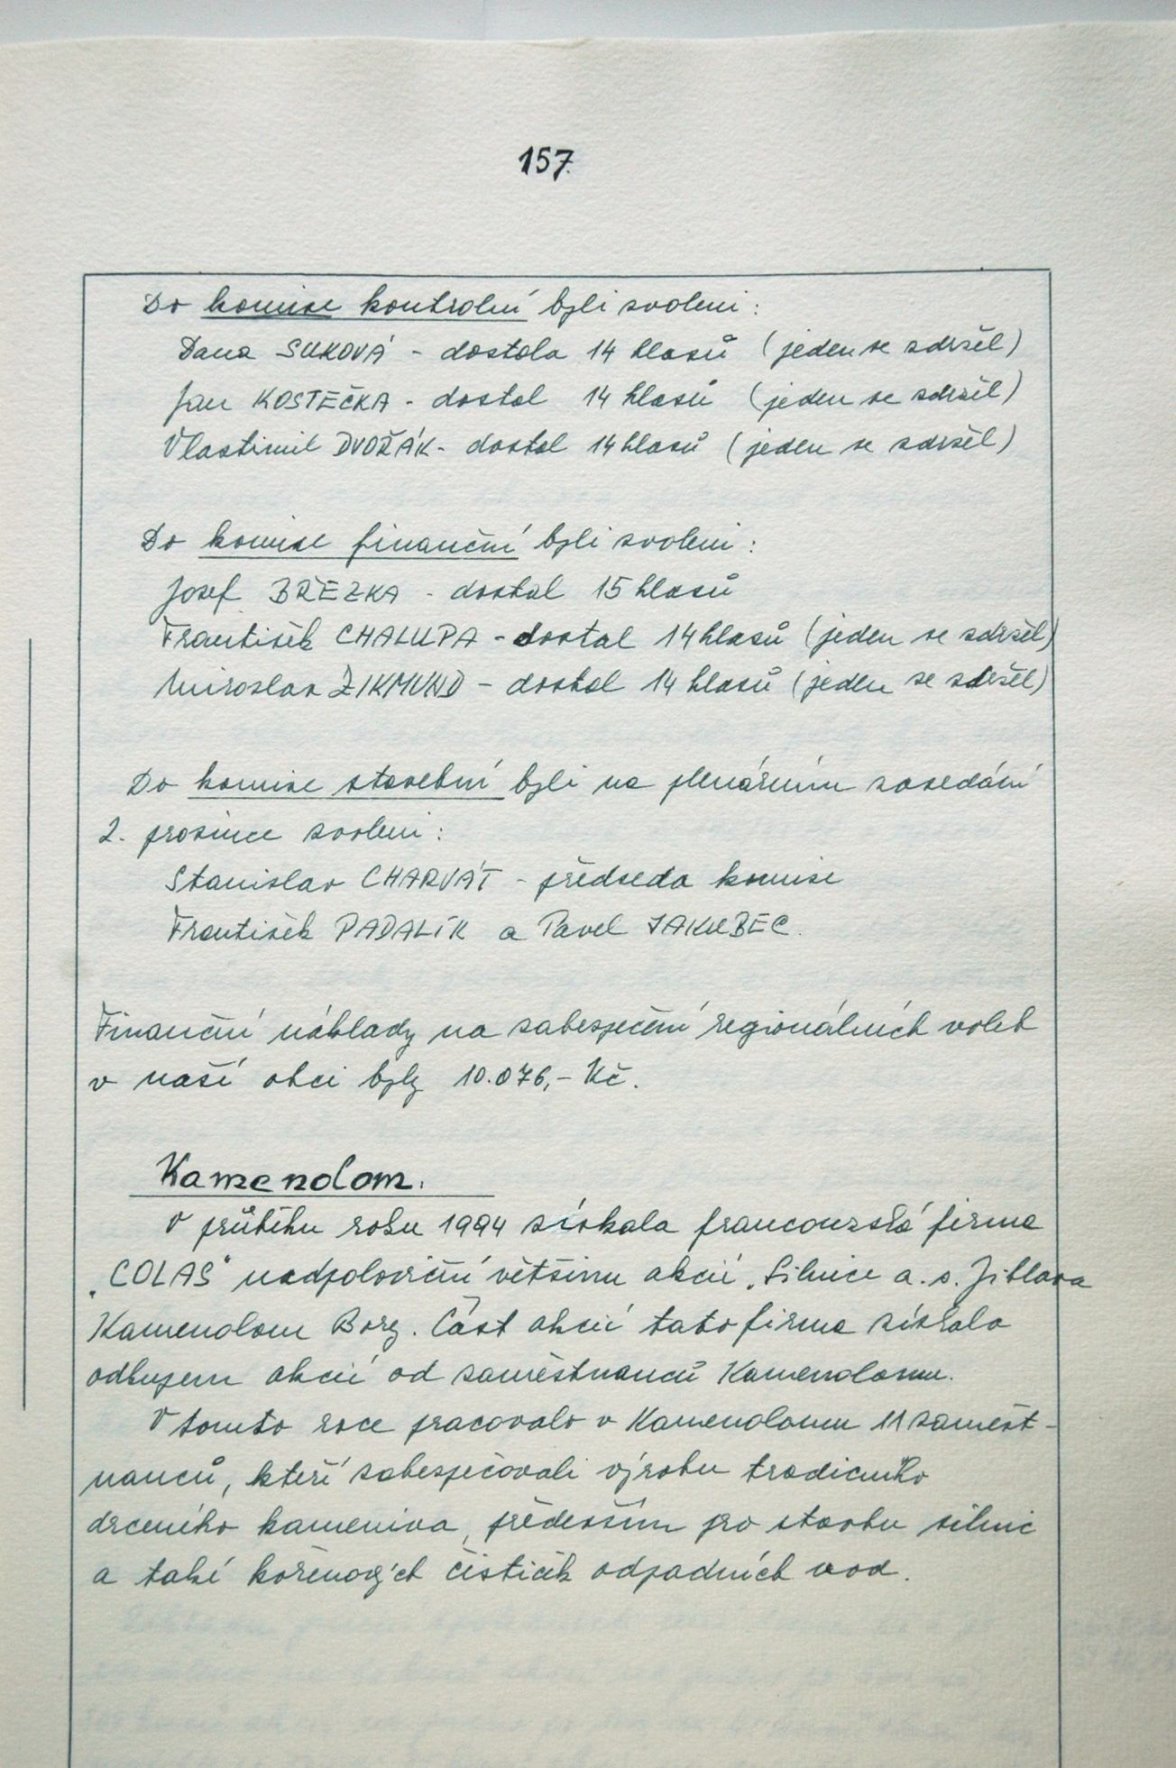 157.
Do komise kontrolní byli zvoleni:
Dana SUKOVÁ - dostala 14 hlasů (jeden se zdržel)
Jan KOSTEČKA - dostal 14 hlasů (jeden se zdržel)
Vlastimil DVOŘÁK - dostal 14 hlasů (jeden se zdržel)
Do komise finanční byli zvoleni:
Josef BŘEZKA - dostal 15 hlasů
František CHALUPA - dostal 14 hlasů (jeden se zdržel)
Miroslav ZIKMUND - dostal 14 hlasů (jeden se zdržel)
Do komise stavební byli na plenárním zasedání
2. prosince zvoleni:
Stanislav CHARVÁT - předseda komise
František PADALÍK a Pavel JAKUBEC.
Finanční náklady na zabezpečení regionálních voleb
v naší obci byly 10.076,- Kč.
Kamenolom.
V průběhu roku 1994 získala francouzská firma
"COLAS" nadpoloviční většinu akcií "Silnice a.s. Jihlava
Kamenolom Bory. Část akcií tato firma získala
odkupem akcií od zaměstnanců Kamenolomu.
V tomto roce pracovalo v Kamenolomu 11 zaměst-
nanců, kteří zabezpečovali výrobu tradičního
drceného kameniva, především pro stavbu silnic
a také kořenových čističek odpadních vod.